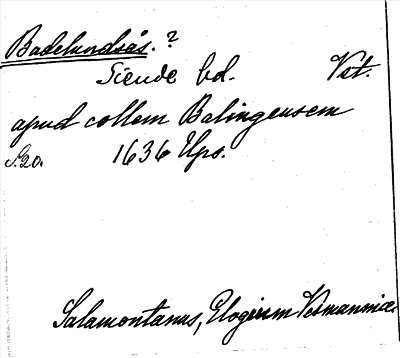 Badelundsås. ?
Siende hd. Vst.
apud collem Balingensem
S. 20. 1636 Ups.
Salamontanus, Elogium Vesmanniæ